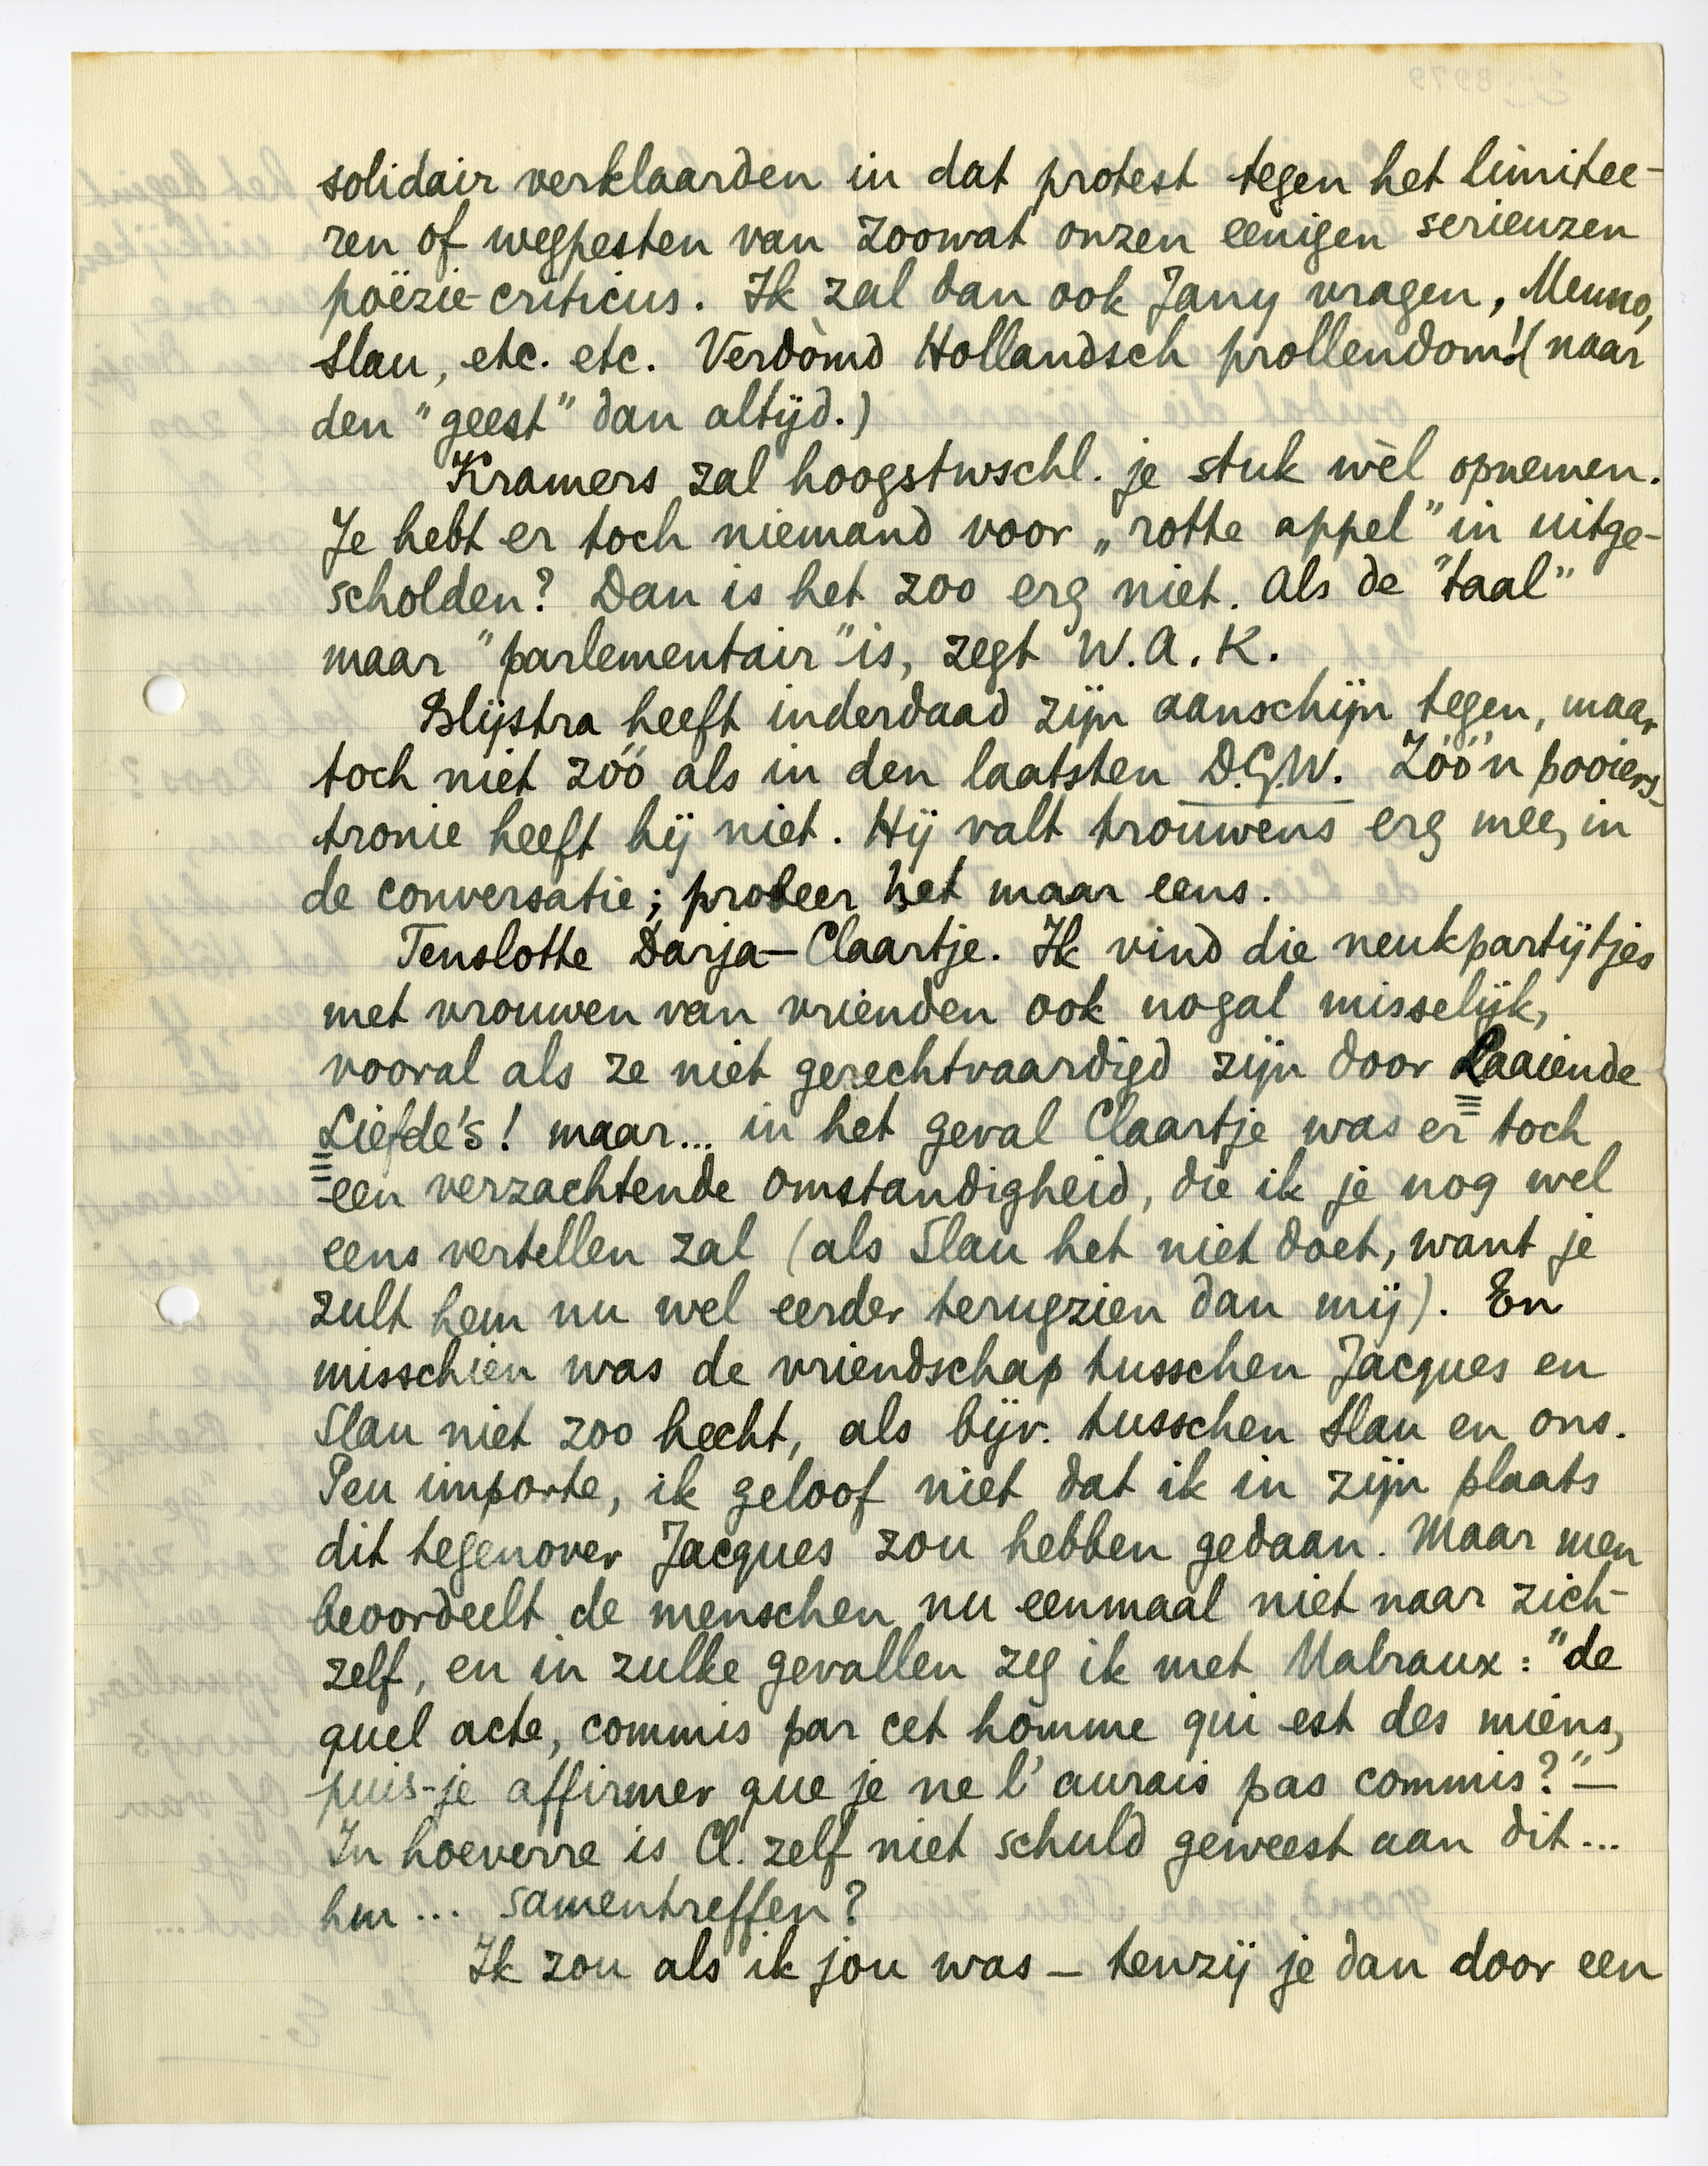 solidair verklaarden in dat protest tegen het limitee-
ren of wegpesten van zoowat onzen eenigen serieuzen
poëzie-criticus. Ik zal dan ook Jany vragen, Menno,
Slau, etc. etc. Verdòmd Hollandsch prollendom! (naar
den "geest" dan altijd.)
Kramers zal hoogstwschl. je stuk wèl opnemen.
Je hebt er toch niemand voor „rotte appel" in uitge-
scholden? Dan is het zoo erg niet. Als de "taal"
maar "parlementair" is, zegt W.A.K.
Blijstra heeft inderdaad zijn aanschijn tegen, maar
toch niet zóó als in den laatsten D.G.W. Zóó'n pooiers-
tronie heeft hij niet. Hij valt trouwens erg mee, in
de conversatie; probeer het maar eens.
Tenslotte Darja-Claartje. Ik vind die neukpartijtjes
met vrouwen van vrienden ook nogal misselijk,
vooral als ze niet gerechtvaardigd zijn door Laaiende
Liefde's! maar... in het geval Claartje was er toch
een verzachtende omstandigheid, die ik je nog wel
eens vertellen zal (als Slau het niet doet, want je
zult hem nu wel eerder terugzien dan mij). En
misschien was de vriendschap tusschen Jacques en
Slau niet zoo hecht, als bijv. tusschen Slau en ons.
Peu importe, ik geloof niet dat ik in zijn plaats
dit tegenover Jacques zou hebben gedaan. Maar men
beoordeelt de menschen nu eenmaal niet naar zich-
zelf, en in zulke gevallen zeg ik met Malraux: "de
quel acte, commis par cet homme qui est des miens,
puis-je affirmer que je ne l'aurais pas commis?" —
In hoeverre is Cl. zelf niet schuld geweest aan dit...
hm... samentreffen?
Ik zou als ik jou was — tenzij je dan door een